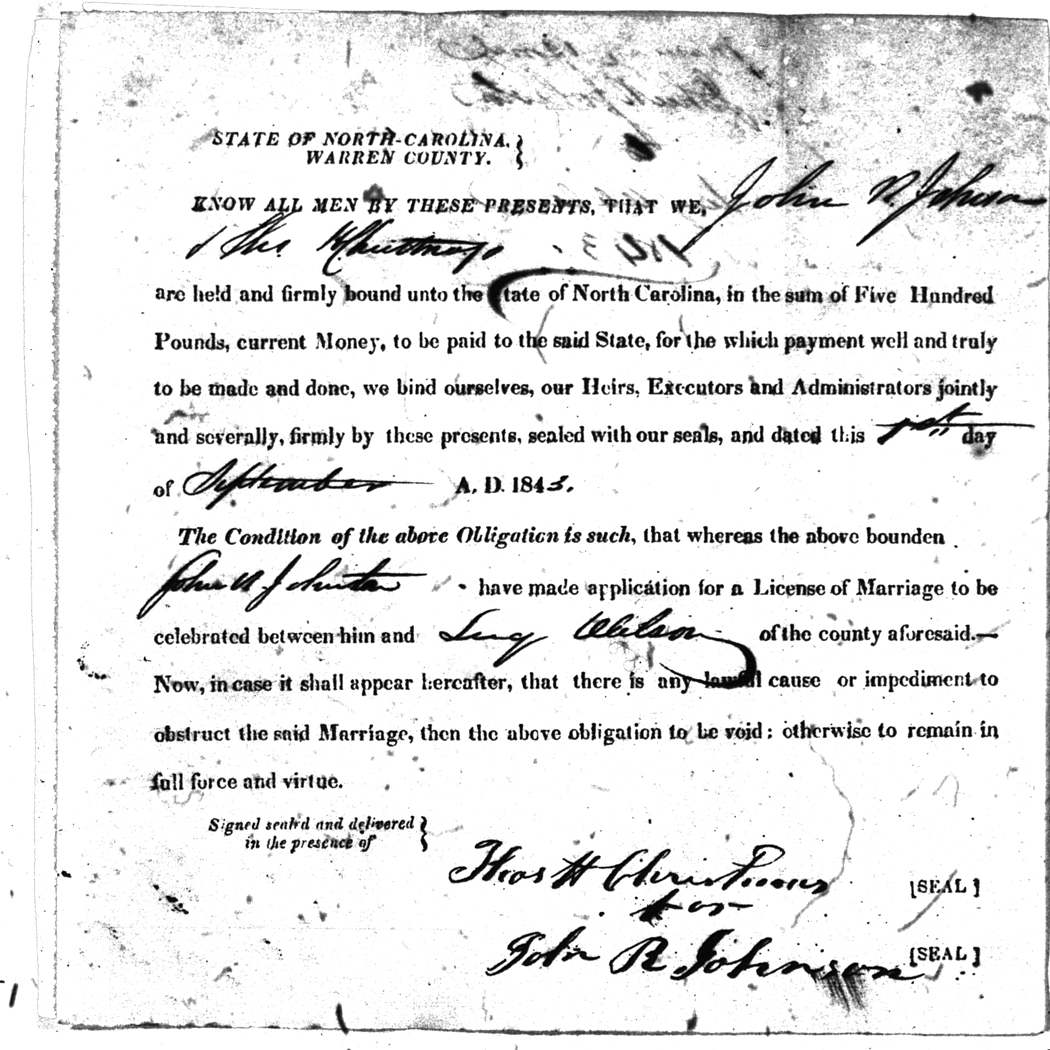 STATE OF NORTH-CAROLINA,
WARREN COUNTY.
KNOW ALL MEN BY THESE PRESENTS, THAT WE, John R. Johnson
&
are held and firmly bound unto the State of North Carolina, in the sum of Five Hundred
Pounds, current Money, to be paid to the said State, for the which payment well and truly
to be made and done, we bind ourselves, our Heirs, Executors and Administrators jointly
and severally, firmly by these presents, sealed with our seals, and dated this 1st day
of September A. D. 1843.
The Condition of the above Obligation is such, that whereas the above bounden
John R Johnston have made application for a License of Marriage to be
celebrated between him and Lucy Wilson of the county aforesaid.—
Now, in case it shall appear hereafter, that there is any lawful cause or impediment to
obstruct the said Marriage, then the above obligation to be void: otherwise to remain in
full force and virtue.
Signed sealed and delivered
in the presence of
Thos H Christmas [SEAL]
for
John R Johnson [SEAL]